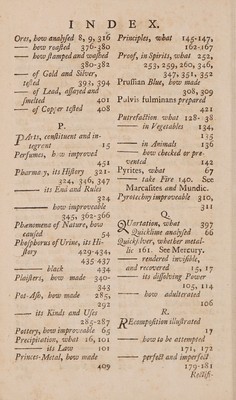 INDEX.
Ores, how analysed 8, 9, 316
—— how roasted 376-380
—— how stamped and washed
380-382
—— of Gold and Silver,
tested 393, 394
—— of Lead, assayed and
smelted 401
—— of Copper tested 408
P.
PArts, constituent and in-
tegrent 15
Perfumes, how improved
451
Pharmacy, its History 321-
324, 346, 347
—— its End and Rules
324
—— how improveable
345, 362-366
Phænomena of Nature, how
caused 54
Phosphorus of Urine, its Hi-
story 429-434,
435-437
—— black 434
Plaisters, how made 340-
343
Pot-Ash, how made 285,
292
—— its Kinds and Uses
285-287
Pottery, how improveable 65
Precipitation, what 16, 101
—— its Law 101
Princes-Metal, how made
409
Principles, what 145-147,
162-167
Proof, in Spirits, what 252,
253, 259, 260, 346,
347, 351, 352
Prussian Blue, how made
308, 309
Pulvis fulminans prepared
421
Putrefaction what 128-38
—— in Vegetables 134,
135
—— in Animals 136
—— how checked or pre-
vented 142
Pyrites, what 67
—— take Fire 140. See
Marcasites and Mundic.
Pyrotechny improveable 310,
311
Q.
QUartation, what 397
Quicklime analysed 66
Quicksilver, whether metal-
lic 161. See Mercury.
—— rendered invisible,
and recovered 15, 17
—— its dissolving Power
105, 114
—— how adulterated
106
R.
REcomposition illustrated
17
—— how to be attempted
171, 172
—— perfect and imperfect
179-181
Rectifi-